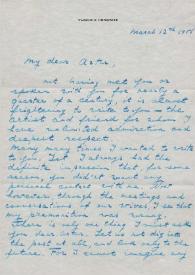 March 12th 1958
My dear Astr
not having met you or
spoken with you for nearly a
quarter of a century, it is almost
frightening to write to you - the
artist and friend for whom I
have unlimited admiration and
deepest respect.
Many many times I wanted to write
to you, but I always had the
definite impression that for some
reason you didn't want any
personal contact with me. Now
however, through the meetings and
conversations of our wives, I see that
my premonition was wrong.
There is only one thing I must ask
you dear let us not dig into
the past at all, and look only to the
future. For I cannot imagine any